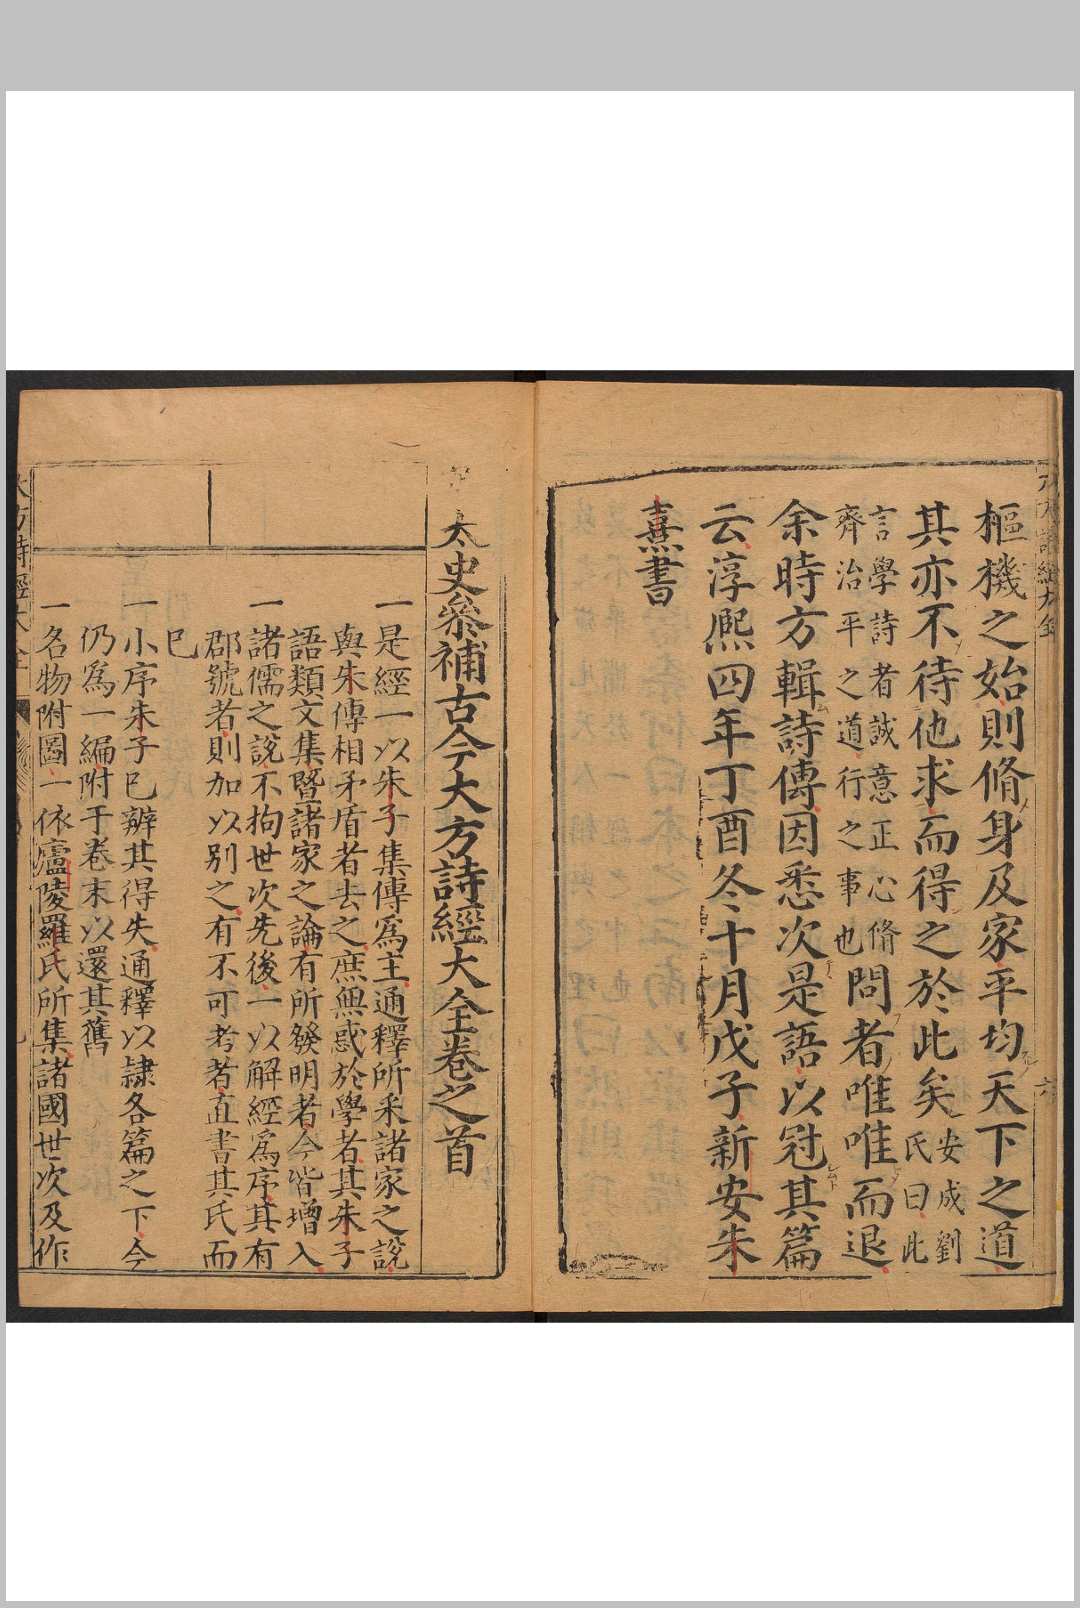 樞機之始則脩身及家平均天下之道
其亦不待他求而得之於此矣安成劉氏曰此
言學詩者誠意正心脩齊治平之道行之事也問者唯唯而退
余時方輯詩傳因悉次是語以冠其篇
云淳熈四年丁酉冬十月戊子新安朱
熹書
太史叅補古今大方詩經大全卷之首
一是經一以朱子集傳爲主通釋所釆諸家之說
與朱傳相矛盾者去之庶無惑於學者其朱子
語類文集暨諸家之論有所發明者今皆增入
一諸儒之說不拘世次先後一以解經爲序其有
郡號者則加以别之有不可考者直書其氏而
巳
一小序朱子巳辨其得失通釋以隷各篇之下今
仍爲一編附于卷末以還其舊
一名物附圖一依廬陵羅氏所集諸國世次及作